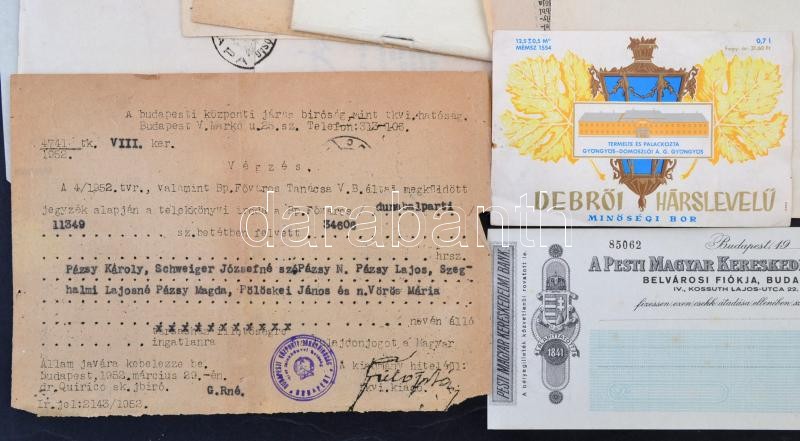 A budapesti központi járás biróság mint tkvi.hatóság.
Budapest V.Markó u.25.sz. Telefon:313-106.
4741. tk. VIII. ker.
1952.
Végzés.
A 4/1952.tvr., valamint Bp.Főváros Tanácsa V.B.által megküldött
jegyzék alapján a telekkönyvi Bp.Főváros dunabalparti
11349 sz.betétben felvett 34606
hrsz.
Pázsy Károly, Schweiger Józsefné sz.Pázsy N. Pázsy Lajos, Szeg-
halmi Lajosné Pázsy Magda, Pölöskei János és n.Vörös Mária
nevén álló
xxxxxxxxxxx
ingatlanra tulajdonjogot a Magyar
Állam javára kebelezze be.
Budapest,1952.március 29.-én.
A kiadmány hiteléül:
dr.Quirico sk.jbiró.
G.Rné.
tkvi.kiadó.
Ir.jel:2143/1952.
12,5 ± 0,5 M°
MÉMSZ 1554
0,7 l
Fogy. ár: 31,60 Ft
TERMELTE ÉS PALACKOZTA
GYÖNGYÖS-DOMOSZLÓI Á. G. GYÖNGYÖS
DEBRŐI HÁRSLEVELŰ
MINŐSÉGI BOR
85062
Budapest, 19
A PESTI MAGYAR KERESKED
BELVÁROSI FIÓKJA, BUDA
IV., KOSSUTH LAJOS-UTCA
fizessen ezen csekk átadása ellenében
PESTI MAGYAR KERESKEDELMI BANK
A bélyegilleték közvetlenül rovatott le.
ALAPITTATOTT
1841
darabanth